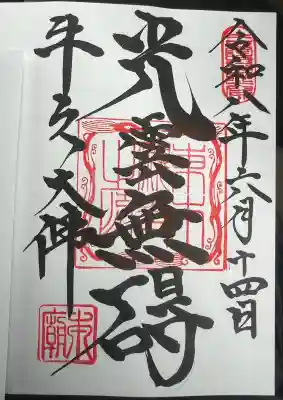 令和八年六月十四日
光雲無碍
牛久大佛